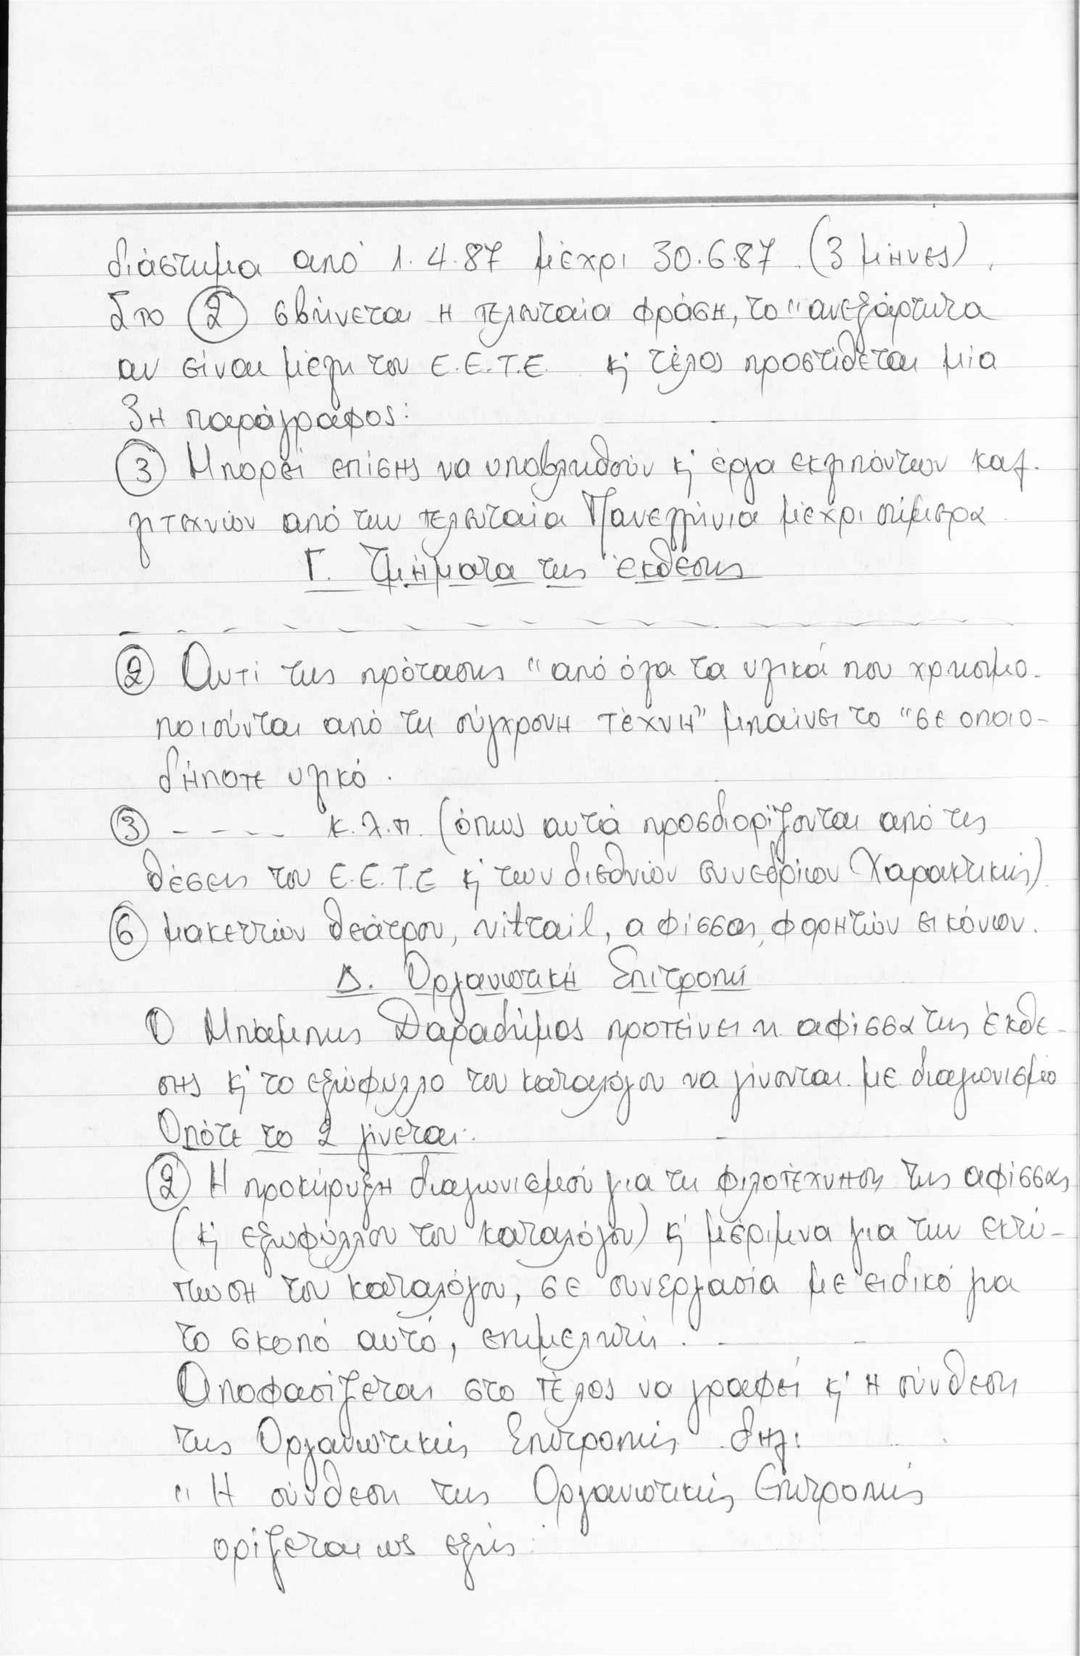 διάστημα από 1.4.87 μέχρι 30.6.87 (3 μήνες).
Στο (2) σβήνεται η τελευταία φράση, το "ανεξάρτητα
αν είναι μέλη του Ε.Ε.Τ.Ε κ' τέλος προστίθεται μία
3η παράγραφος:
(3) Μπορεί επίσης να υποβληθούν κ' έργα εκλιπόντων καλ-
λιτεχνών από την τελευταία Πανελλήνια μέχρι σήμερα
Γ. Τμήματα της έκθεσης
(2) Αντί της πρότασης "από όλα τα υλικά που χρησιμο-
ποιούνται από τη σύγχρονη τέχνη" μπαίνει το "σε οποιο-
δήποτε υλικό.
(3) - - - - κ.λ.π. (όπως αυτά προσδιορίζονται από τις
θέσεις του Ε.Ε.Τ.Ε κ' των διεθνών συνεδρίων Χαρακτικής)
(6) μακεττών θεάτρου, vitrail, αφίσσας, φορητών εικόνων.
Δ. Οργανωτική Επιτροπή
Ο Μπάμπης Δαραδήμος προτείνει η αφίσσα της έκθε-
σης κ' το εξώφυλλο του καταλόγου να γίνονται με διαγωνισμό
Οπότε το 2 γίνεται:
(2) Η προκήρυξη διαγωνισμού για τη φιλοτέχνηση της αφίσσας
(κ' εξωφύλλου του καταλόγου) κ' μέριμνα για την εκτύ-
πωση του καταλόγου, σε συνεργασία με ειδικό για
το σκοπό αυτό, επιμελητή.
Αποφασίζεται στο τέλος να γραφεί κ' η σύνθεση
της Οργανωτικής Επιτροπής δηλ:
"Η σύνθεση της Οργανωτικής Επιτροπής
ορίζεται ως εξής: